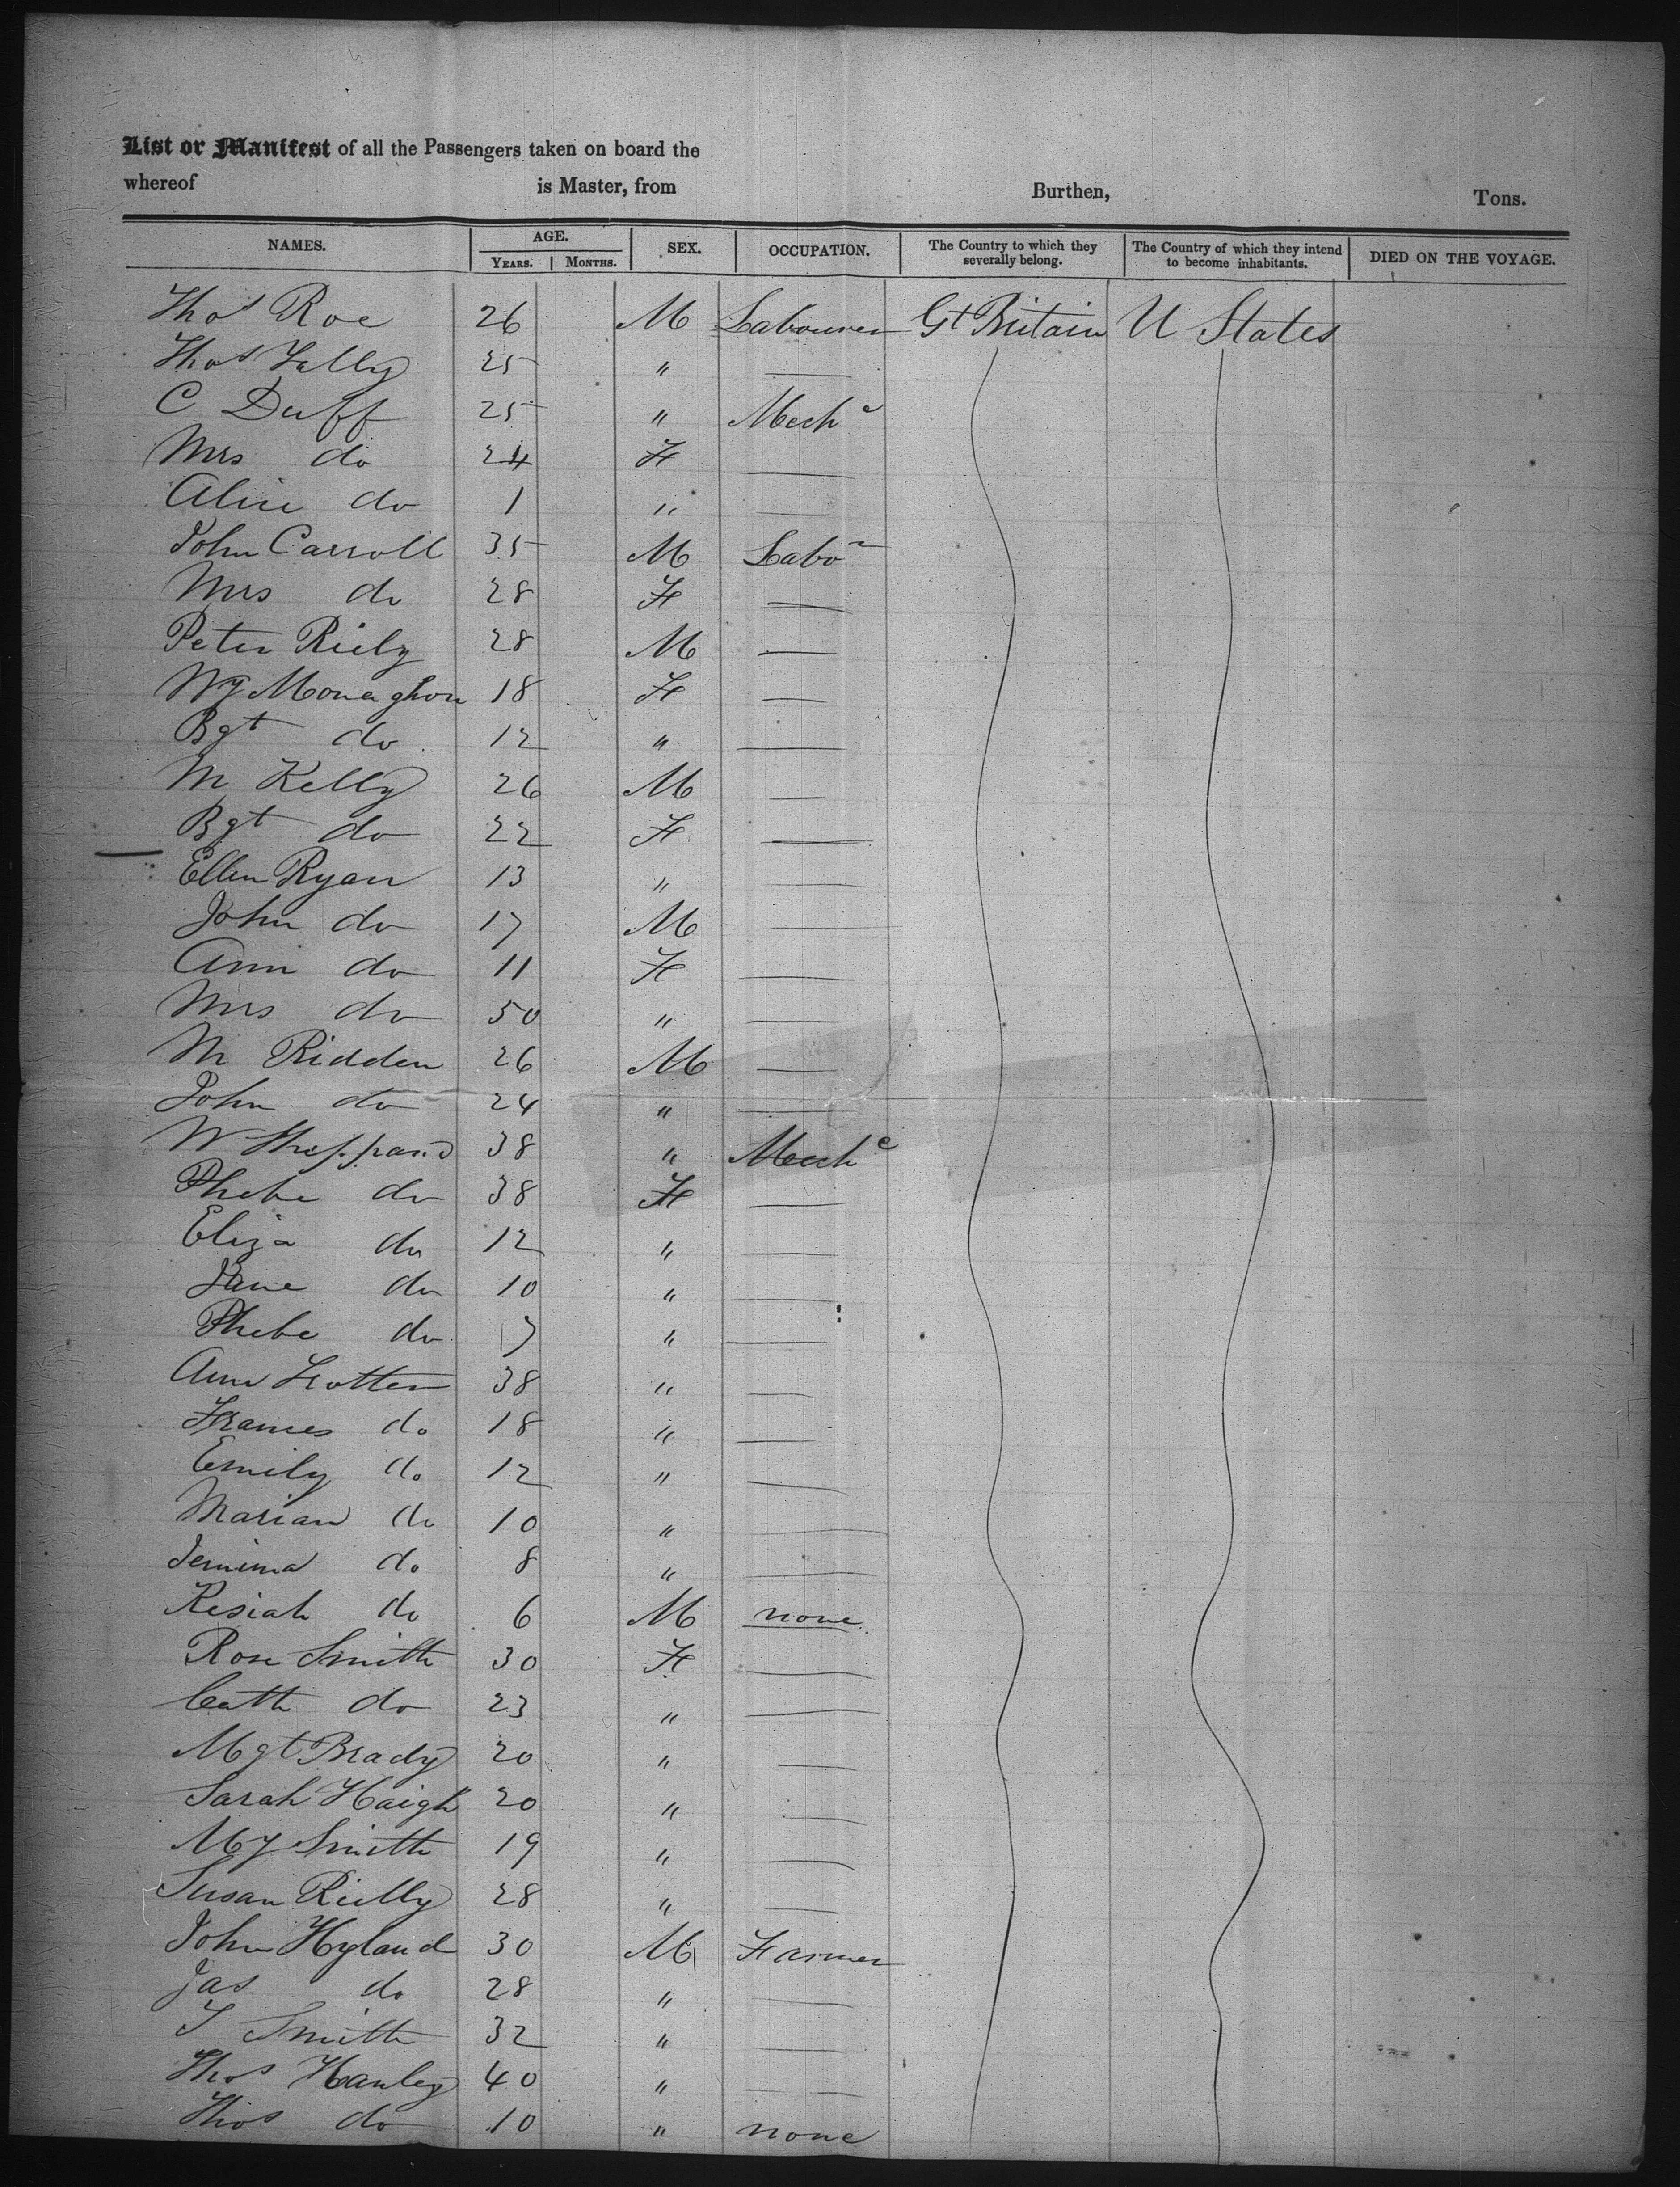 List or Manifest of all the Passengers taken on board the
whereof is Master, from Burthen, Tons.
NAMES. AGE. SEX. OCCUPATION. The Country to which they severally belong. The Country of which they intend to become inhabitants. DIED ON THE VOYAGE.
YEARS. MONTHS.
Thos Roe 26 M Labourer Gt Britain U States
Thos Lally 25 "
C Duff 25 " Mechc
Mrs do 24 F
Alice do 1 "
John Carroll 35 M Labor
Mrs do 28 F
Peter Riely 28 M
My Monaghon 18 F
Bgt do 12 "
M Kelly 26 M
Bgt do 22 F
Ellen Ryan 13 "
John do 17 M
Ann do 11 F
Mrs do 50 "
M Ridden 26 M
John do 24 "
W Sheppard 38 " Mechc
Phebe do 38 F
Eliza do 12 "
Jane do 10 "
Phebe do 7 "
Ann Trotter 38 "
Frances do 18 "
Emily do 12 "
Marian do 10 "
Jemima do 8 "
Kesiah do 6 M none
Rose Smith 30 F
Cath do 23 "
Mgt Brady 20 "
Sarah Haigh 20 "
My Smith 19 "
Susan Rielly 28 "
John Hyland 30 M Farmer
Jas do 28 "
T Smith 32 "
Thos Hanley 40 "
Thos do 10 " none